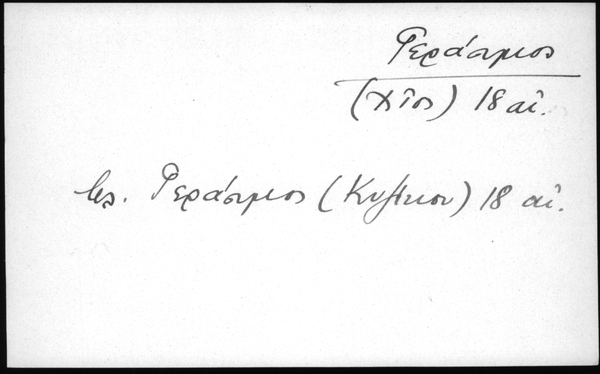 Γεράσιμος
(Χῖος) 18 αἰ.
βλ. Γεράσιμος (Κυζίκου) 18 αἰ.